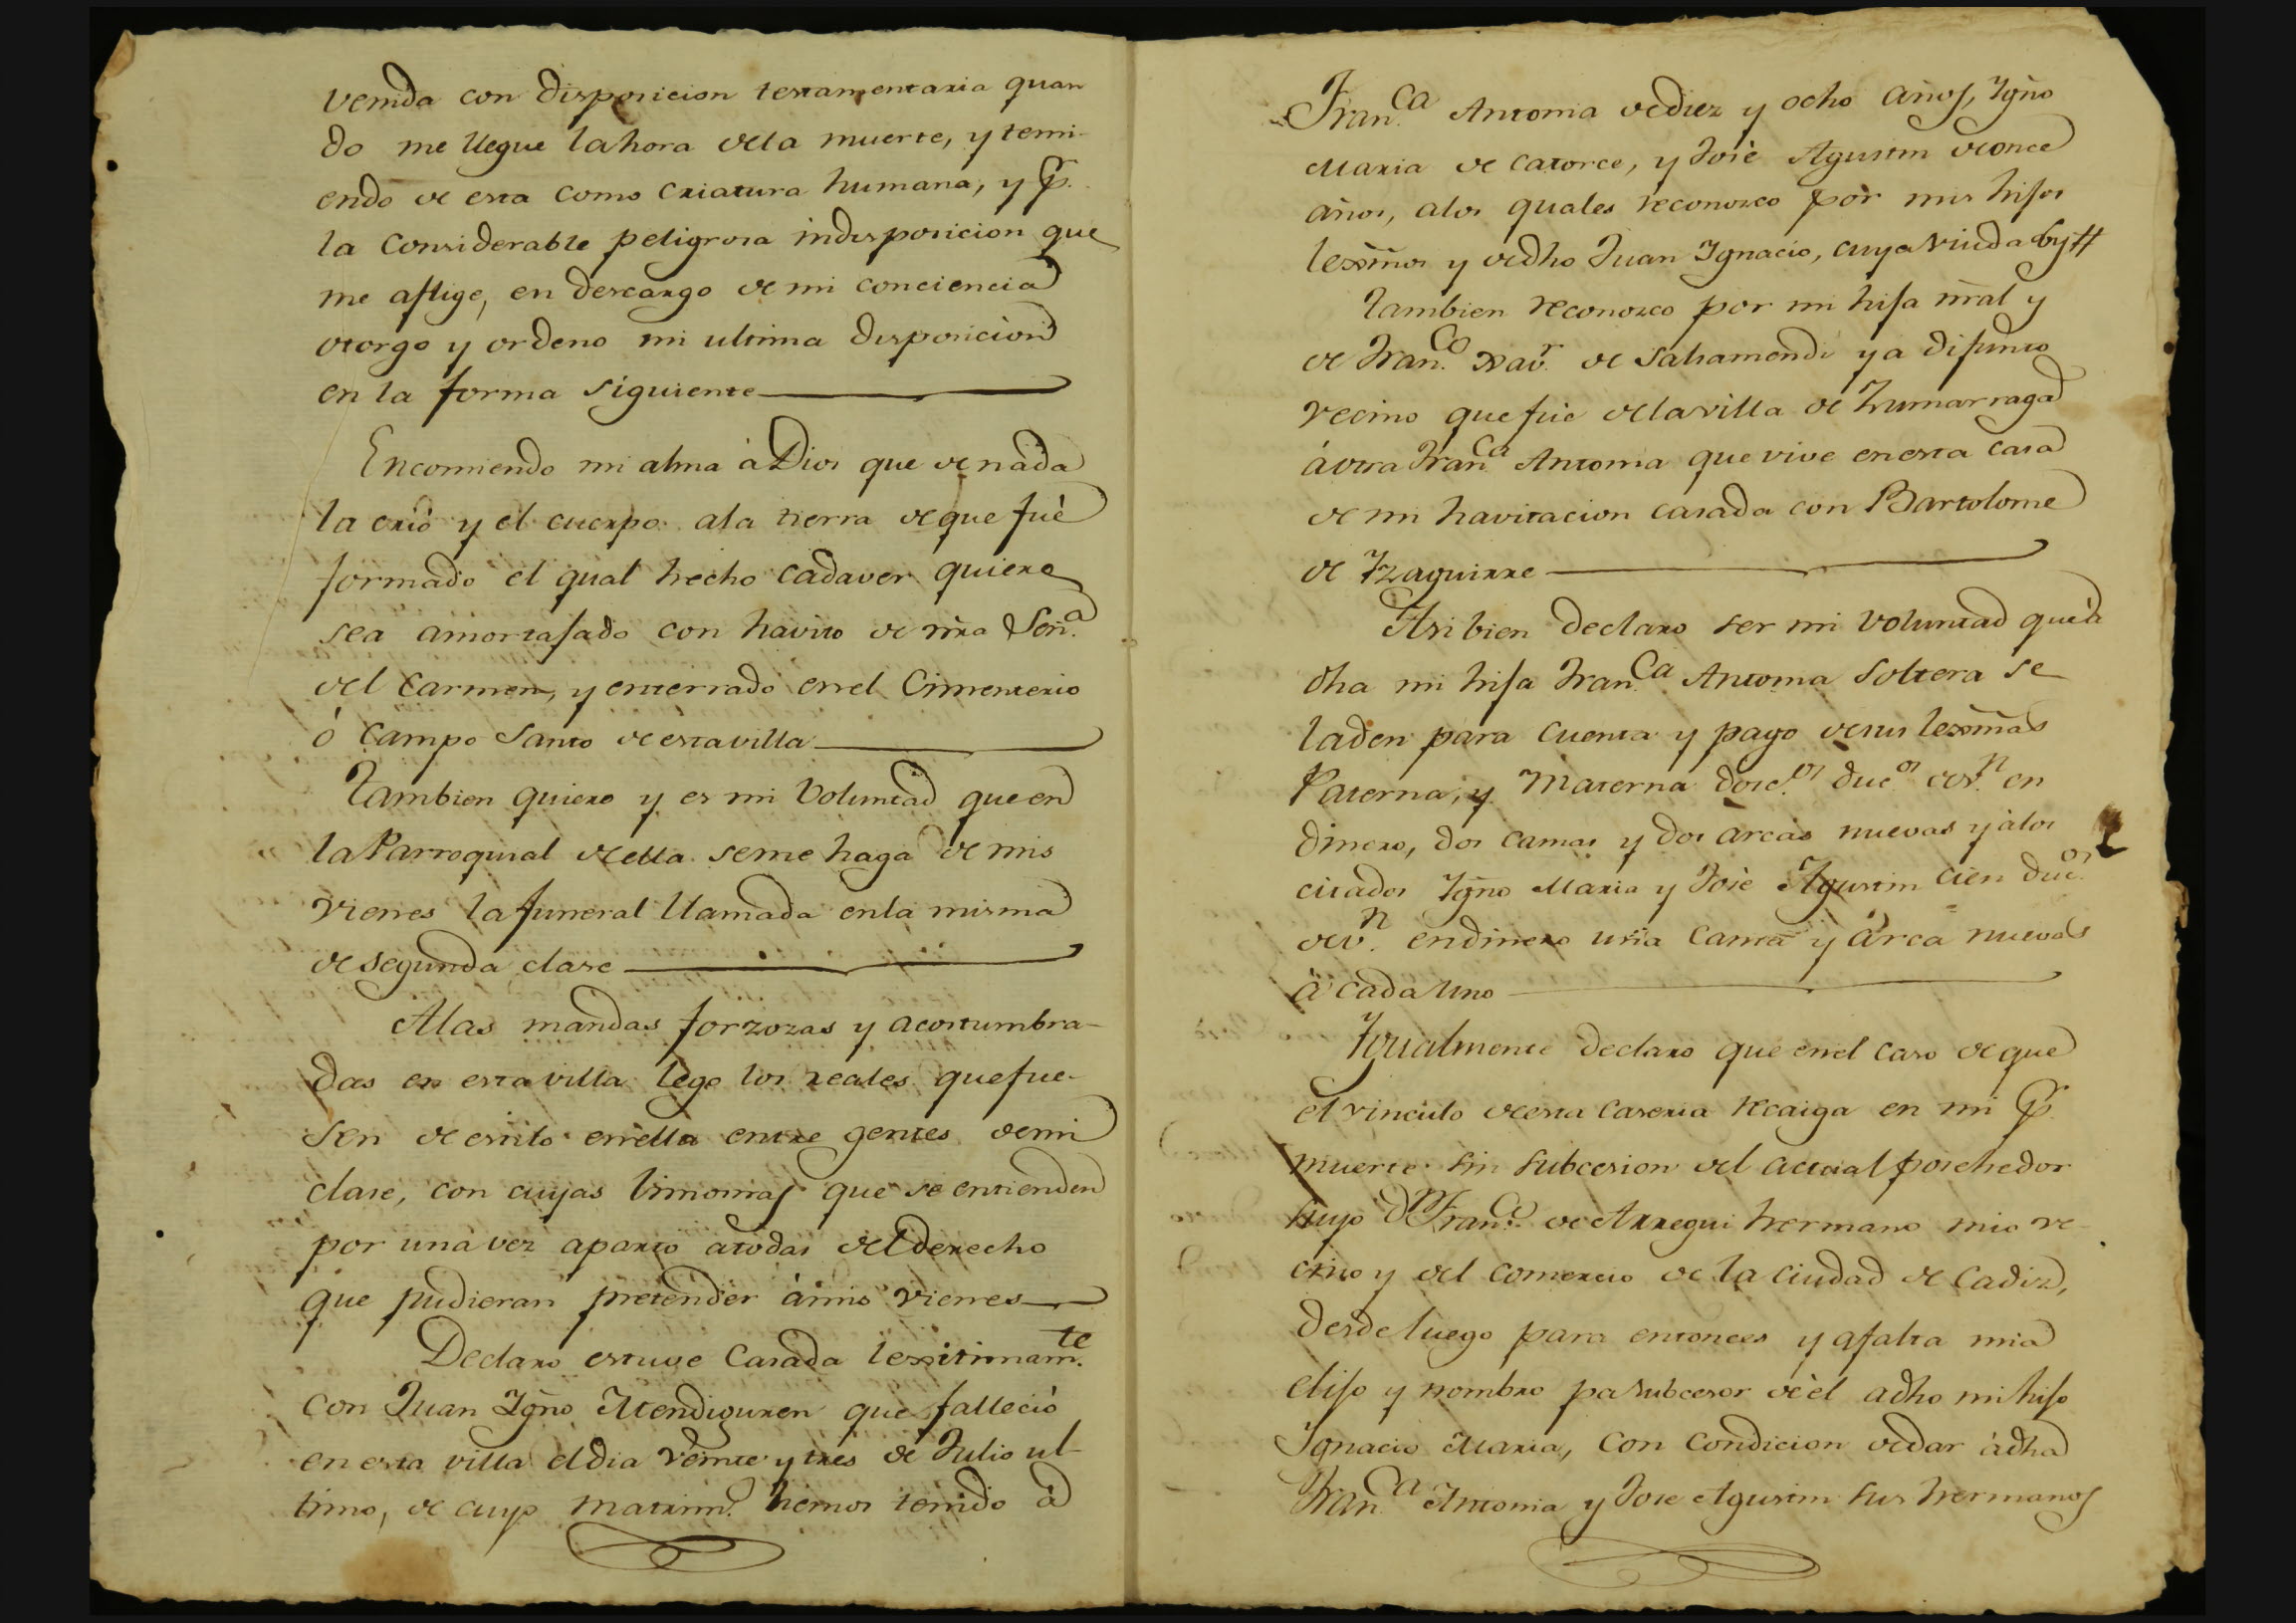 venida con disposicion testamentaria quan
do me llegue la hora de la muerte, y temi-
endo de esta como criatura humana, y p.r
la considerable peligrosa indisposicion que
me aflige, en descargo de mi conciencia
otorgo y ordeno mi ultima disposicion
en la forma siguiente
Encomiendo mi alma à Dios que de nada
la crió y el cuerpo a la tierra de que fuè
formado el qual hecho cadaver quiero
sea amortajado con havito de nr̃a Señ.a
del Carmen, y enterrado en el Cimenterio
ó Campo Santo de esta villa
Tambien quiero y es mi voluntad que en
la Parroquial de ella se me haga de mis
vienes la funeral llamada en la misma
de segunda clase
A las mandas forzozas y acostumbra-
das en esta villa lego los reales que fue-
sen de estilo en ella entre gentes de mi
clase, con cuyas limosnas que se entienden
por una vez aparto a todas del derecho
que pudieran pretender à mis vienes
Declaro estuve casada lexitimam.te
con Juan Ygñ̃o Mendiguren que falleciò
en esta villa el dia veinte y tres de Julio ul-
timo, de cuyo matrim.o hemos tenido à
Fran.ca Antonia de diez y ocho años, Ygño
Maria de catorce, y Josè Agustin de once
años, a los quales reconozco por mis hijos
lexm̃os y de dho Juan Ygnacio, cuya viuda soy
Tambien reconozco por mi hija nr̃al y
de Fran.co Xav.r de Sahamendi ya difunto
vecino que fue de la villa de Zumarraga
à otra Fran.ca Antonia que vive en esta casa
de mi havitacion casada con Bartolome
de Yzaguirre
Asi bien declaro ser mi voluntad que à
dha mi hija Fran.ca Antonia soltera se
la den para cuenta y pago de sus lexm̃as
Paterna, y Materna dosc.os duc.os de v.n en
dinero, dos camas y dos arcas nuevas y à los
citados Ygño Maria y Josè Agustin cien duc.os
de v.n en dinero una cama y arca nuevas
à cada uno
Ygualmente declaro que en el caso de que
el vinculo de esta caseria recaiga en mi p.r
muerte sin subcesion del actual posehedor
suyo D.n Fran.co de Arregui hermano mio ve-
cino y del comercio de la ciudad de Cadiz,
desde luego para entonces y a falta mia
elijo y nombro pa subcesor de èl a dho mi hijo
Ygnacio Maria, con condicion de dar à dha
Fran.ca Antonia y Jose Agustin sus hermanos